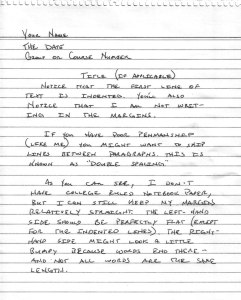 Your Name
The Date
Group or Course Number
Title (if applicable)
Notice that the first line of
text is indented. You'll also
notice that I am not writ-
ing in the margins.
If you have poor penmanship
(like me) you might want to skip
lines between paragraphs. This is
known as "double spacing"
As you can see, I don't
have college ruled notebook paper,
but I can still keep my margins
relatively straight. The left-hand
side should be perfectly flat (except
for the indented lines). The right-
hand side might look a little
bumpy because words end there –
and not all words are the same
length.